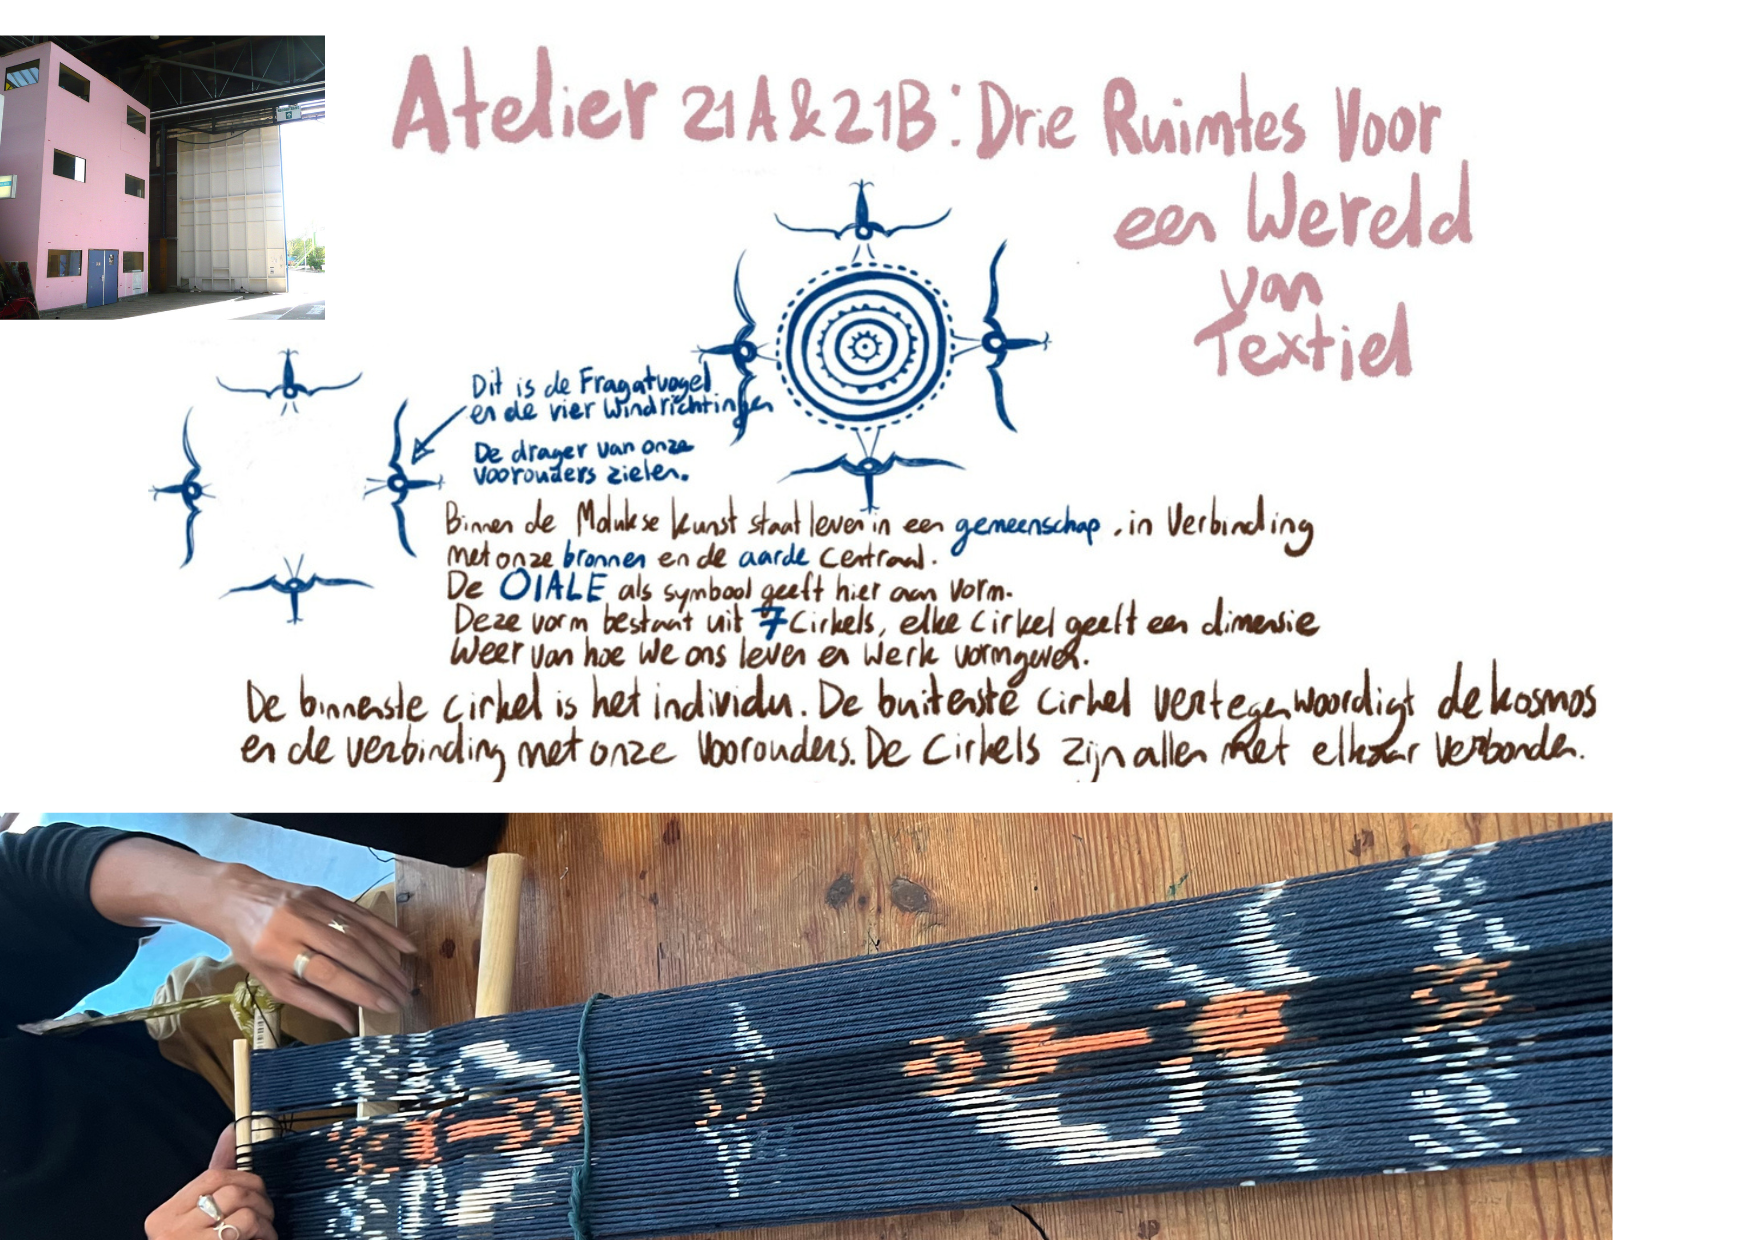 Atelier 21A & 21B: Drie Ruimtes Voor
een Wereld
van
Textiel
Dit is de Fragatvogel
en de vier Windrichtingen
De drager van onze
voorouders zielen.
Binnen de Molukse kunst staat leven in een gemeenschap, in Verbinding
met onze bronnen en de aarde centraal.
De OIALE als symbool geeft hier aan vorm.
Deze vorm bestaat uit 7 Cirkels, elke cirkel geeft een dimensie
Weer van hoe we ons leven en werk vormgeven.
De binnenste cirkel is het individu. De buitenste cirkel vertegenwoordigt de kosmos
en de verbinding met onze Voorouders. De Cirkels zijn allen met elkaar verbonden.